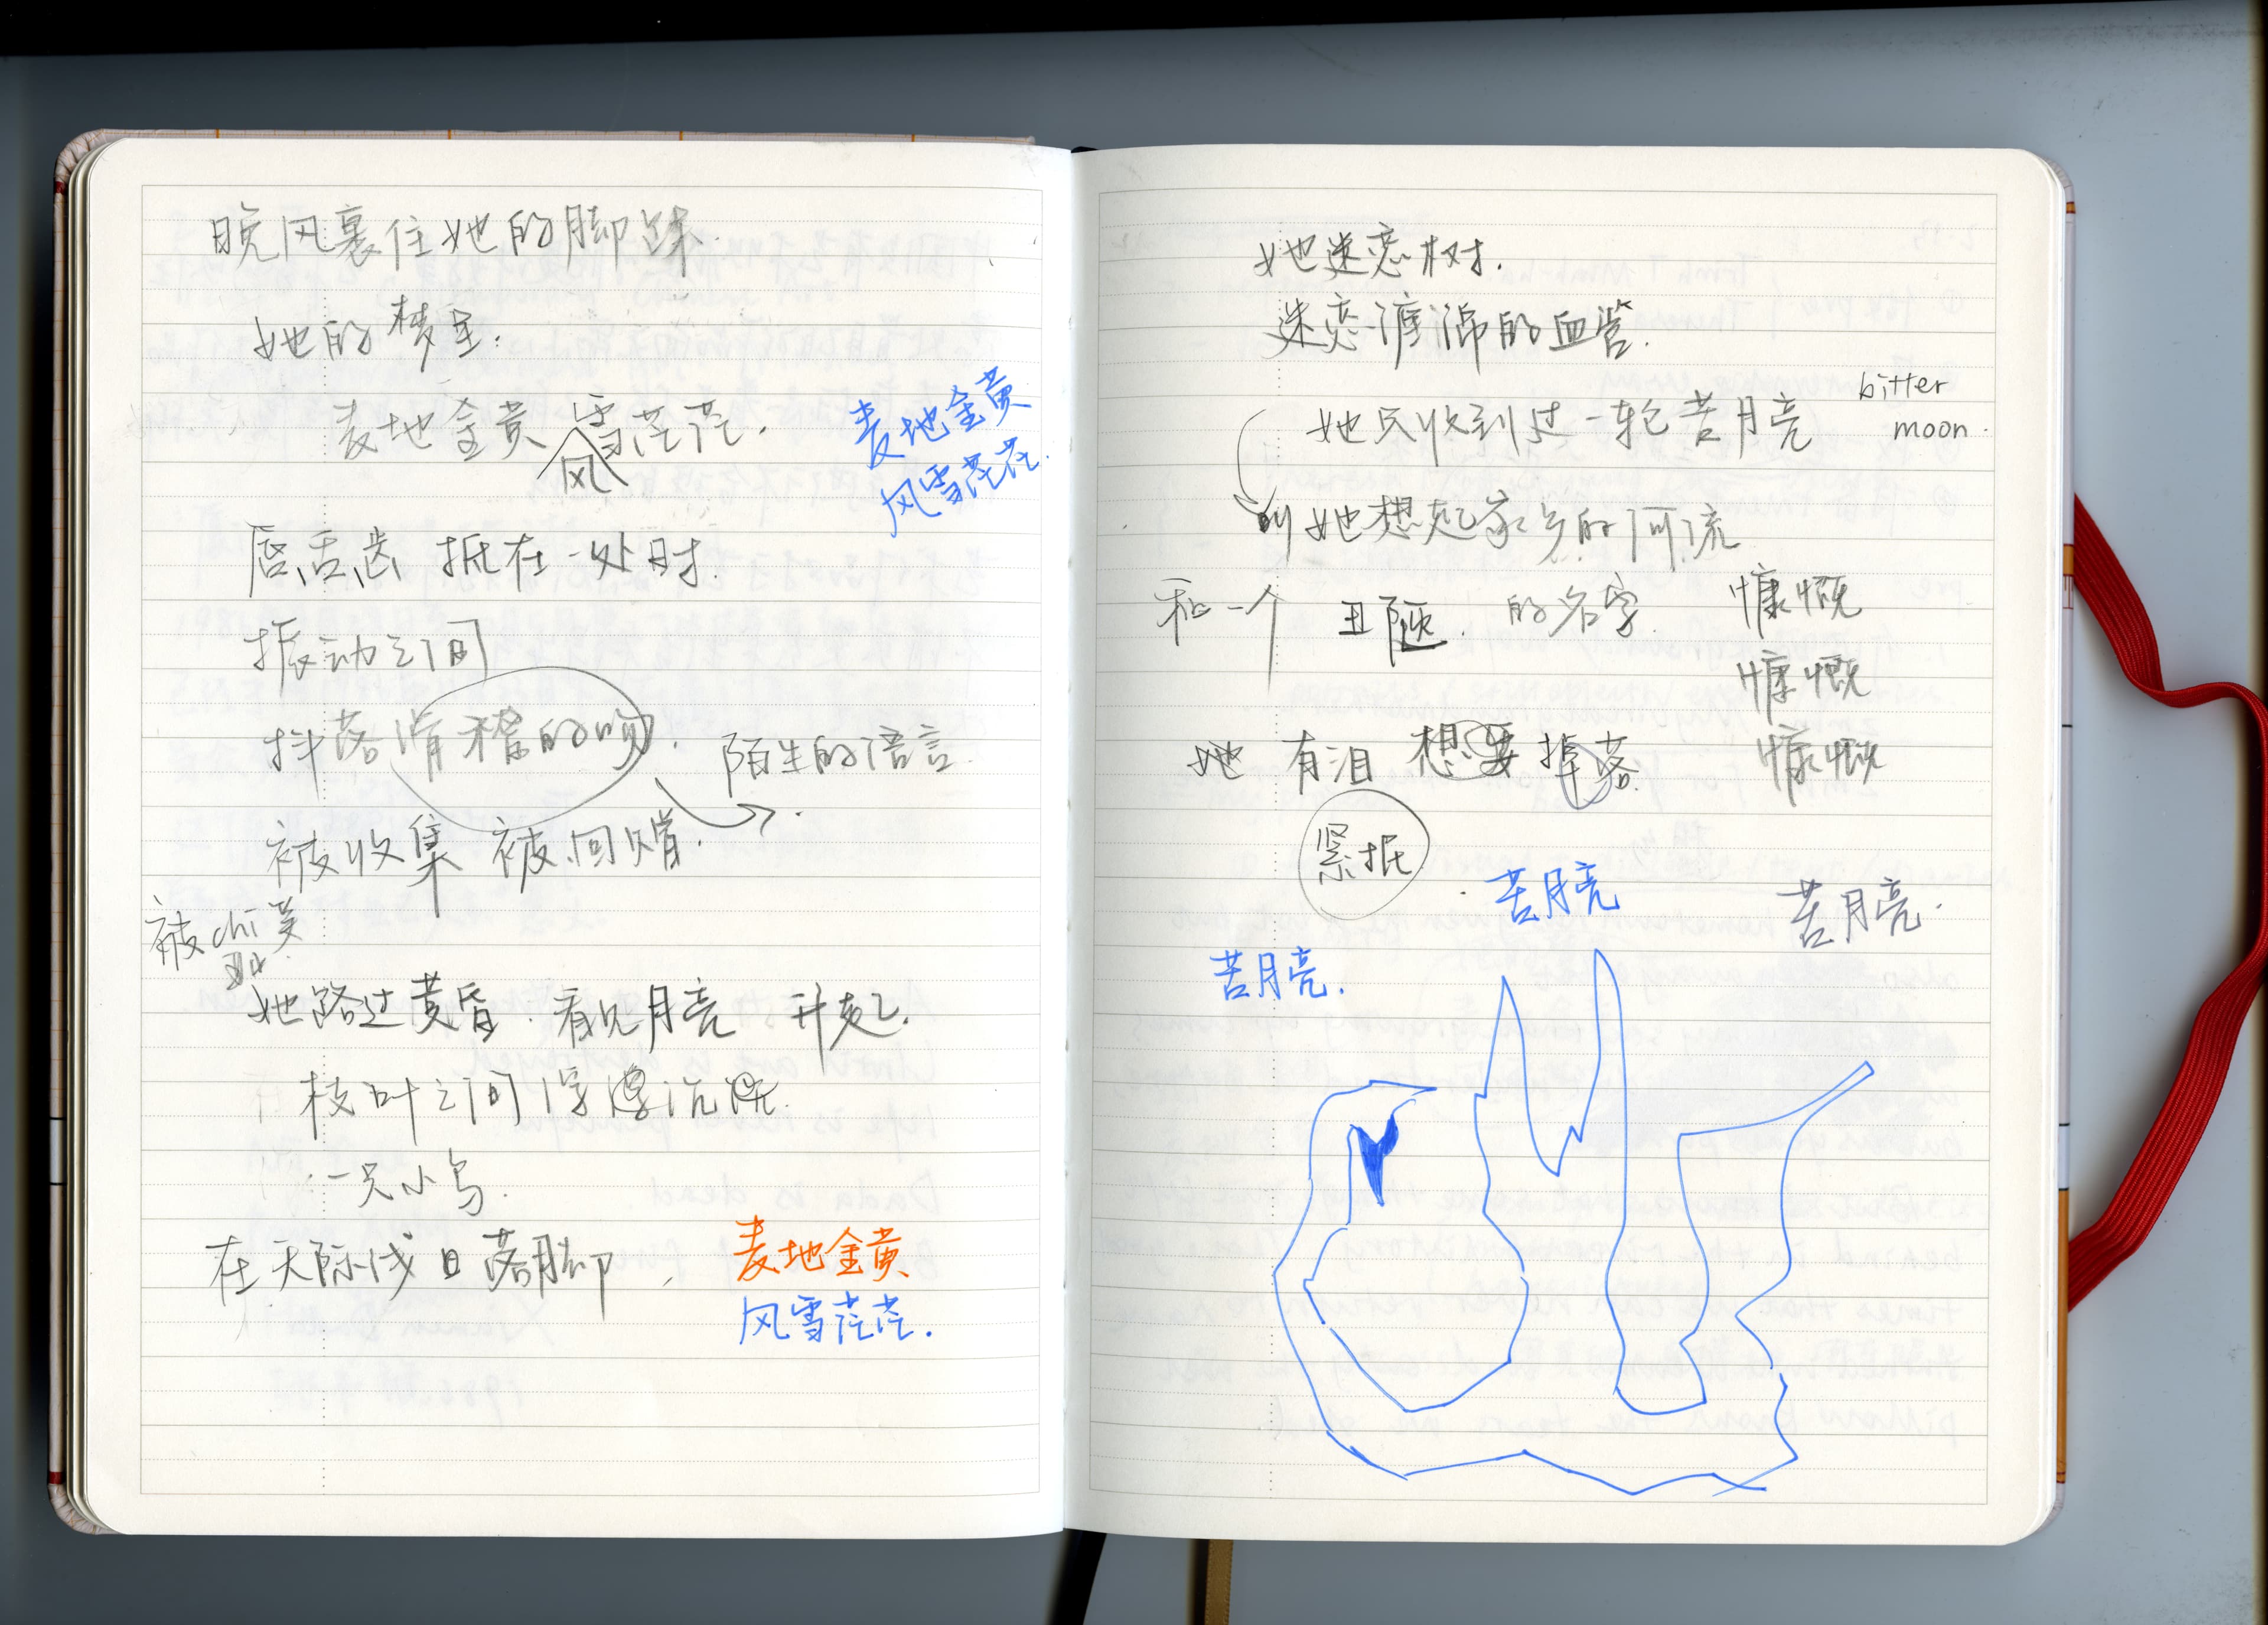 晚风裹住她的脚踝.
她的梦呈.
麦地金黄 雪茫茫.
风
麦地金黄
风雪茫茫.
唇、舌、齿、抵在一处时.
振动之间
抖落滑稽的吻.
陌生的语言.
被收集 被回赠.
被chi笑
她路过黄昏. 看见月亮 升起.
枝叶之间 浮 沉
一只小鸟.
在天际浅 落脚.
麦地金黄
风雪茫茫.
她迷恋树.
迷恋 的血管.
她只收到过一轮苦月亮
bitter
moon.
叫她想起家乡的河流
和一个 丑陋. 的名字.
慷慨
慷慨
慷慨
她 有泪 想要 掉落.
紧抿
苦月亮
苦月亮.
苦月亮.